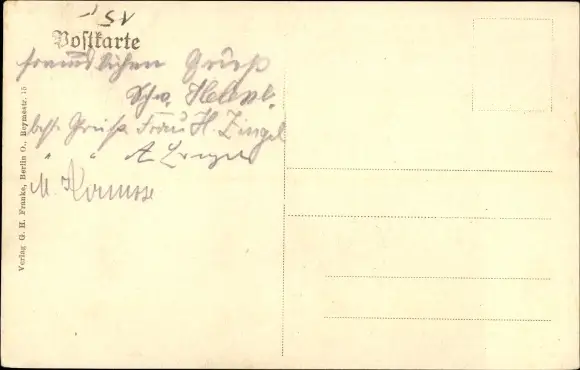 15,-
Postkarte
freundlichen Gruß
Schw. Helene.
beste Grüße Frau H. Zingel
" " A
M. Krumose
Verlag G. H. Franke, Berlin O., Beymestr. 15